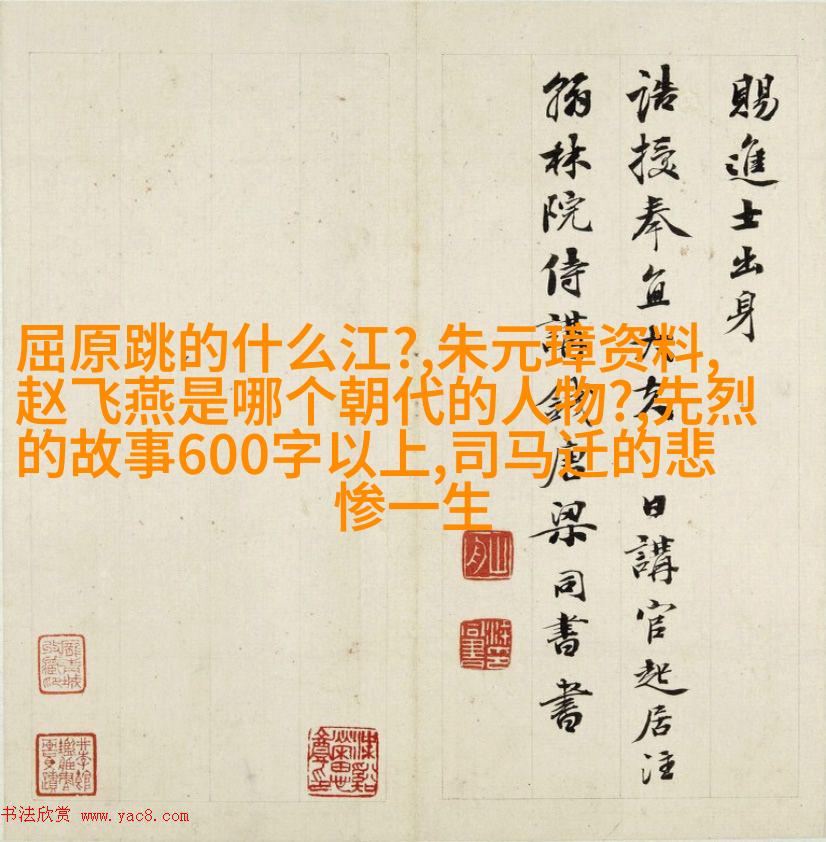 屈原跳的什么江?,朱元璋资料,
赵飞燕是哪个朝代的人物?,先烈
的故事600字以上,司马迁的悲
惨一生
賜進士出身
誥授奉直大夫日講官起居注
翰林院侍講錢唐梁同書書
书法欣赏 www.yac8.com